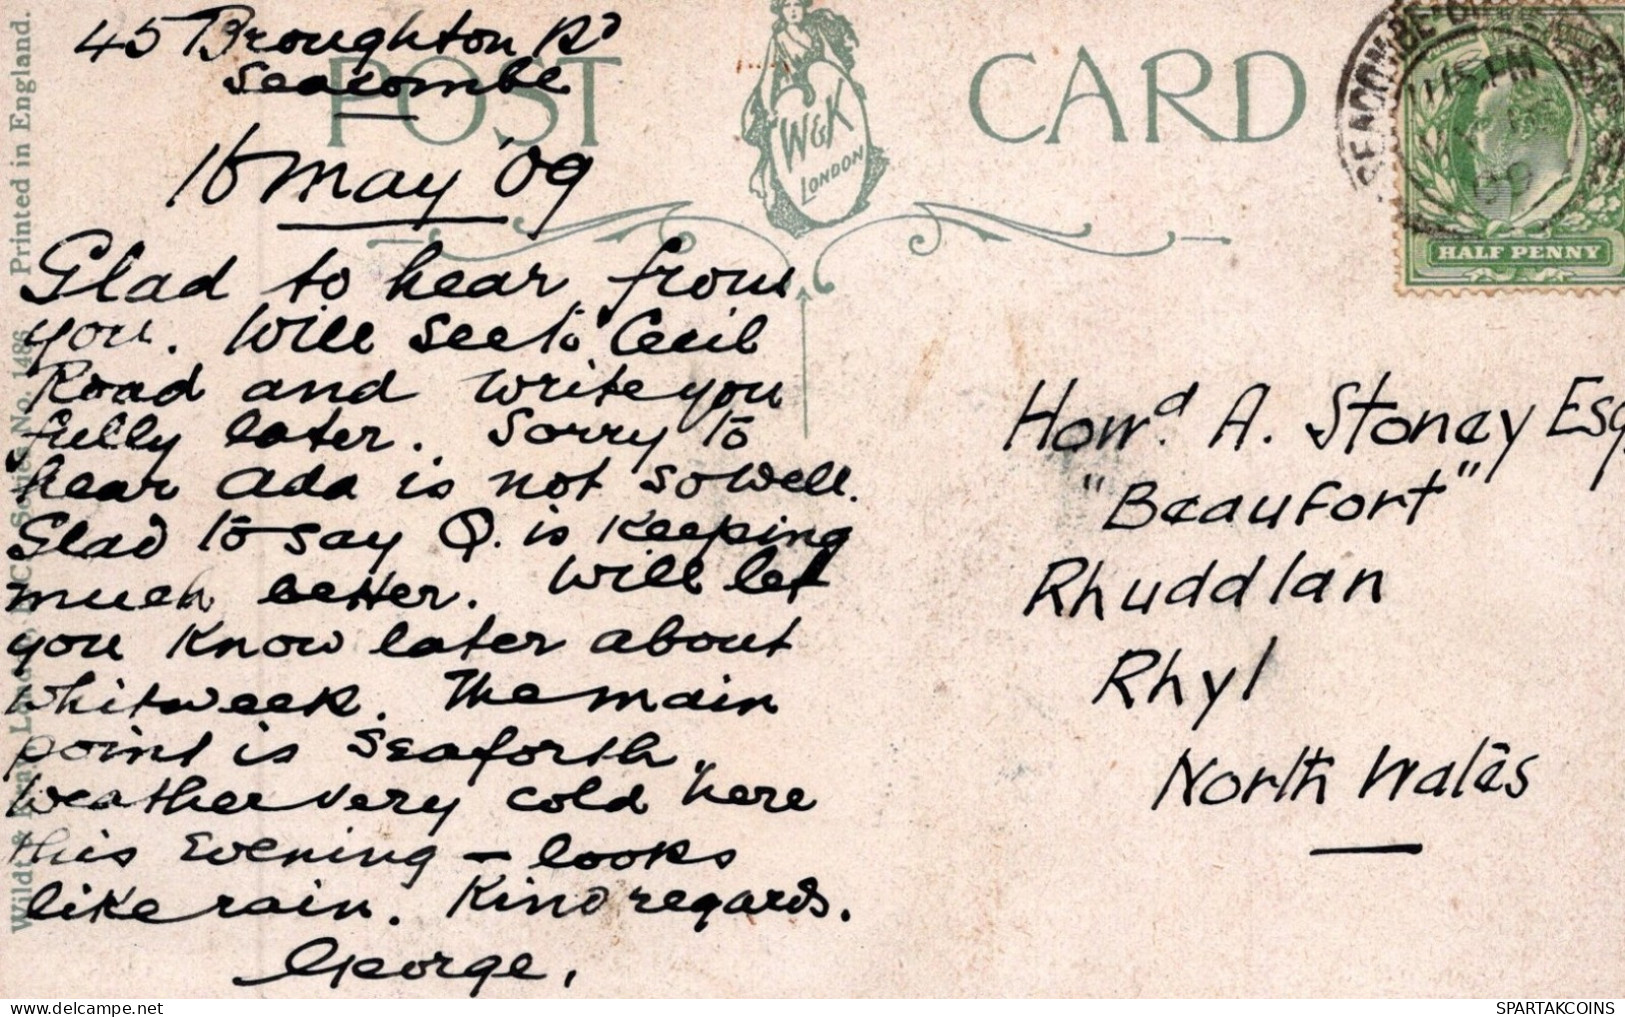 45 Broughton Rd
Seacombe
16 May '09
Glad to hear from
you. Will see to Cecil
Road and write you
fully later. Sorry to
hear Ada is not so well.
Glad to say Q. is keeping
much better. Will let
you know later about
Whitweek. The main
point is Seaforth.
Weather very cold here
this evening – looks
like rain. Kind regards.
George.
POST CARD
W&K
LONDON
SEACOMBE
11 15 PM
MY 16
09
HALF PENNY
Howd. A. Stoney Esq
"Beaufort"
Rhuddlan
Rhyl
North Wales
Wildt & Kray, London, E.C. Series No. 1486 Printed in England.
delcampe.net
SPARTAKCOINS